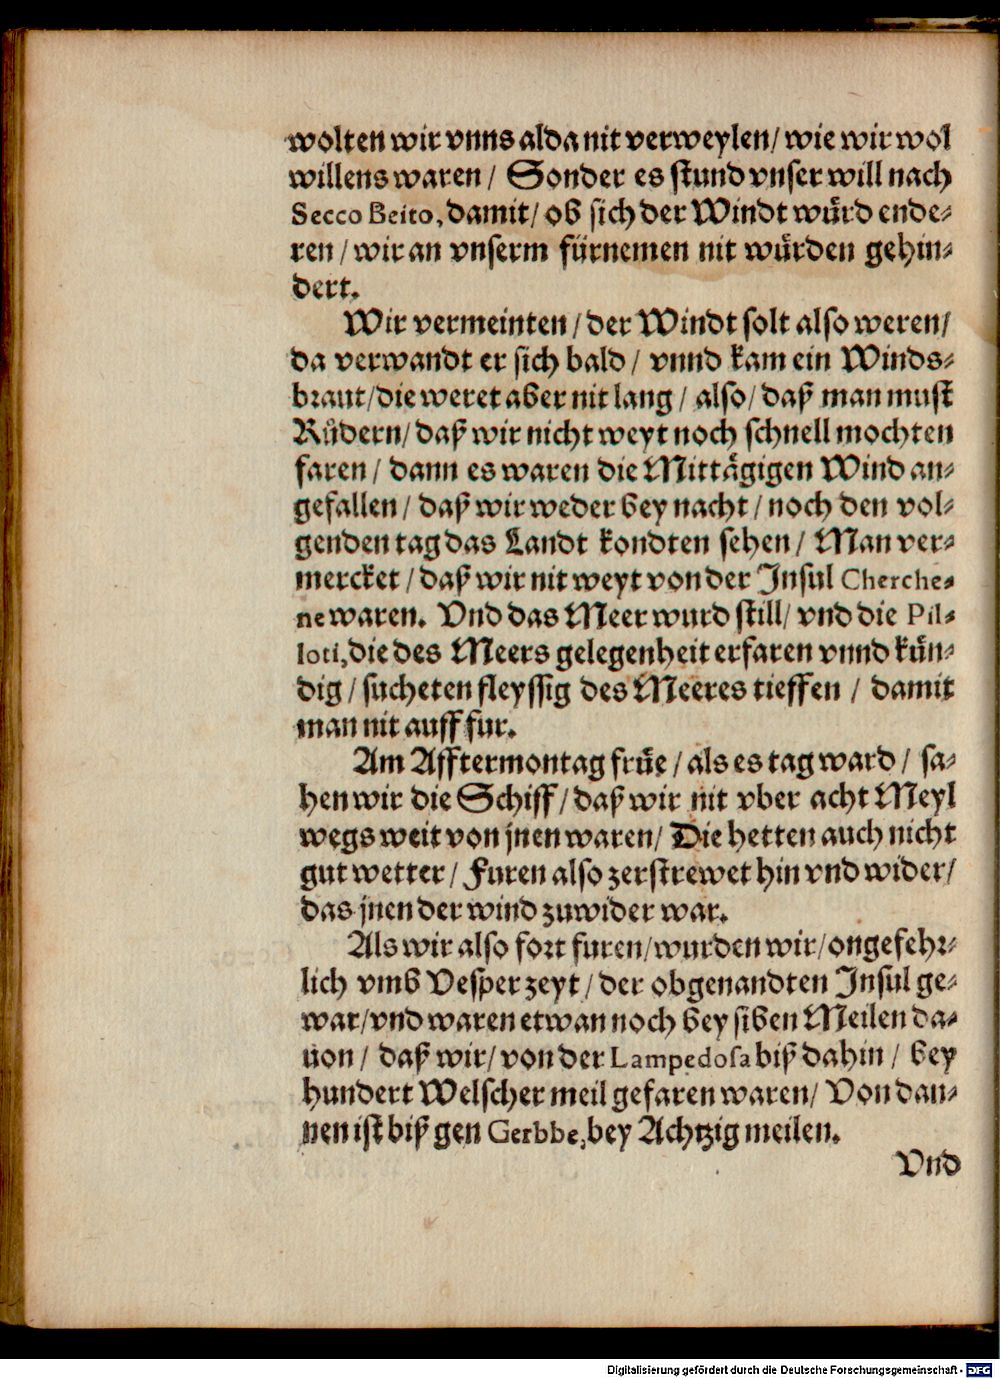 wolten wir vnns alda nit verweylen/ wie wir wol
willens waren / Sonder es stund vnser will nach
Secco Beito, damit/ ob sich der Windt wuͤrd ende⸗
ren / wir an vnserm fürnemen nit wuͤrden gehin⸗
dert.
Wir vermeinten / der Windt solt also weren/
da verwandt er sich bald / vnnd kam ein Winds⸗
braut/die weret aber nit lang / also/ daß man must
Ruͦdern/ daß wir nicht weyt noch schnell mochten
faren / dann es waren die Mittaͤgigen Wind an⸗
gefallen / daß wir weder bey nacht / noch den vol⸗
genden tag das Landt kondten sehen / Man ver⸗
mercket / daß wir nit weyt von der Insul Cherche⸗
ne waren. Vnd das Meer wurd still/ vnd die Pil⸗
loti, die des Meers gelegenheit erfaren vnnd kuͤn⸗
dig / sucheten fleyssig des Meeres tieffen / damit
man nit auff fur.
Am Afftermontag fruͤe / als es tag ward / sa⸗
hen wir die Schiff / daß wir nit vber acht Meyl
wegs weit von jnen waren/ Die hetten auch nicht
gut wetter / Furen also zerstrewet hin vnd wider/
das jnen der wind zuwider war.
Als wir also fort furen/wurden wir/ongefehr⸗
lich vmb Vesper zeyt / der obgenandten Insul ge⸗
war/vnd waren etwan noch bey siben Meilen da⸗
uon / daß wir/ von der Lampedosa biß dahin / bey
hundert Welscher meil gefaren waren/ Von dan⸗
nen ist biß gen Gerbbe, bey Achtzig meilen.
Vnd
Digitalisierung gefördert durch die Deutsche Forschungsgemeinschaft - DFG